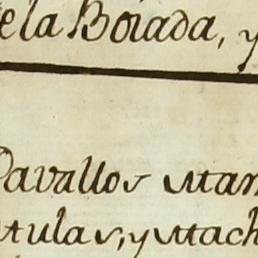 ela Boiada, y
Cavallos Man
tulas, y Mach